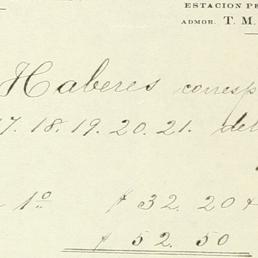 ESTACION PE
ADMOR. T. M.
Haberes corresp
17. 18. 19. 20. 21. del
1º $ 32. 20
$ 52. 50